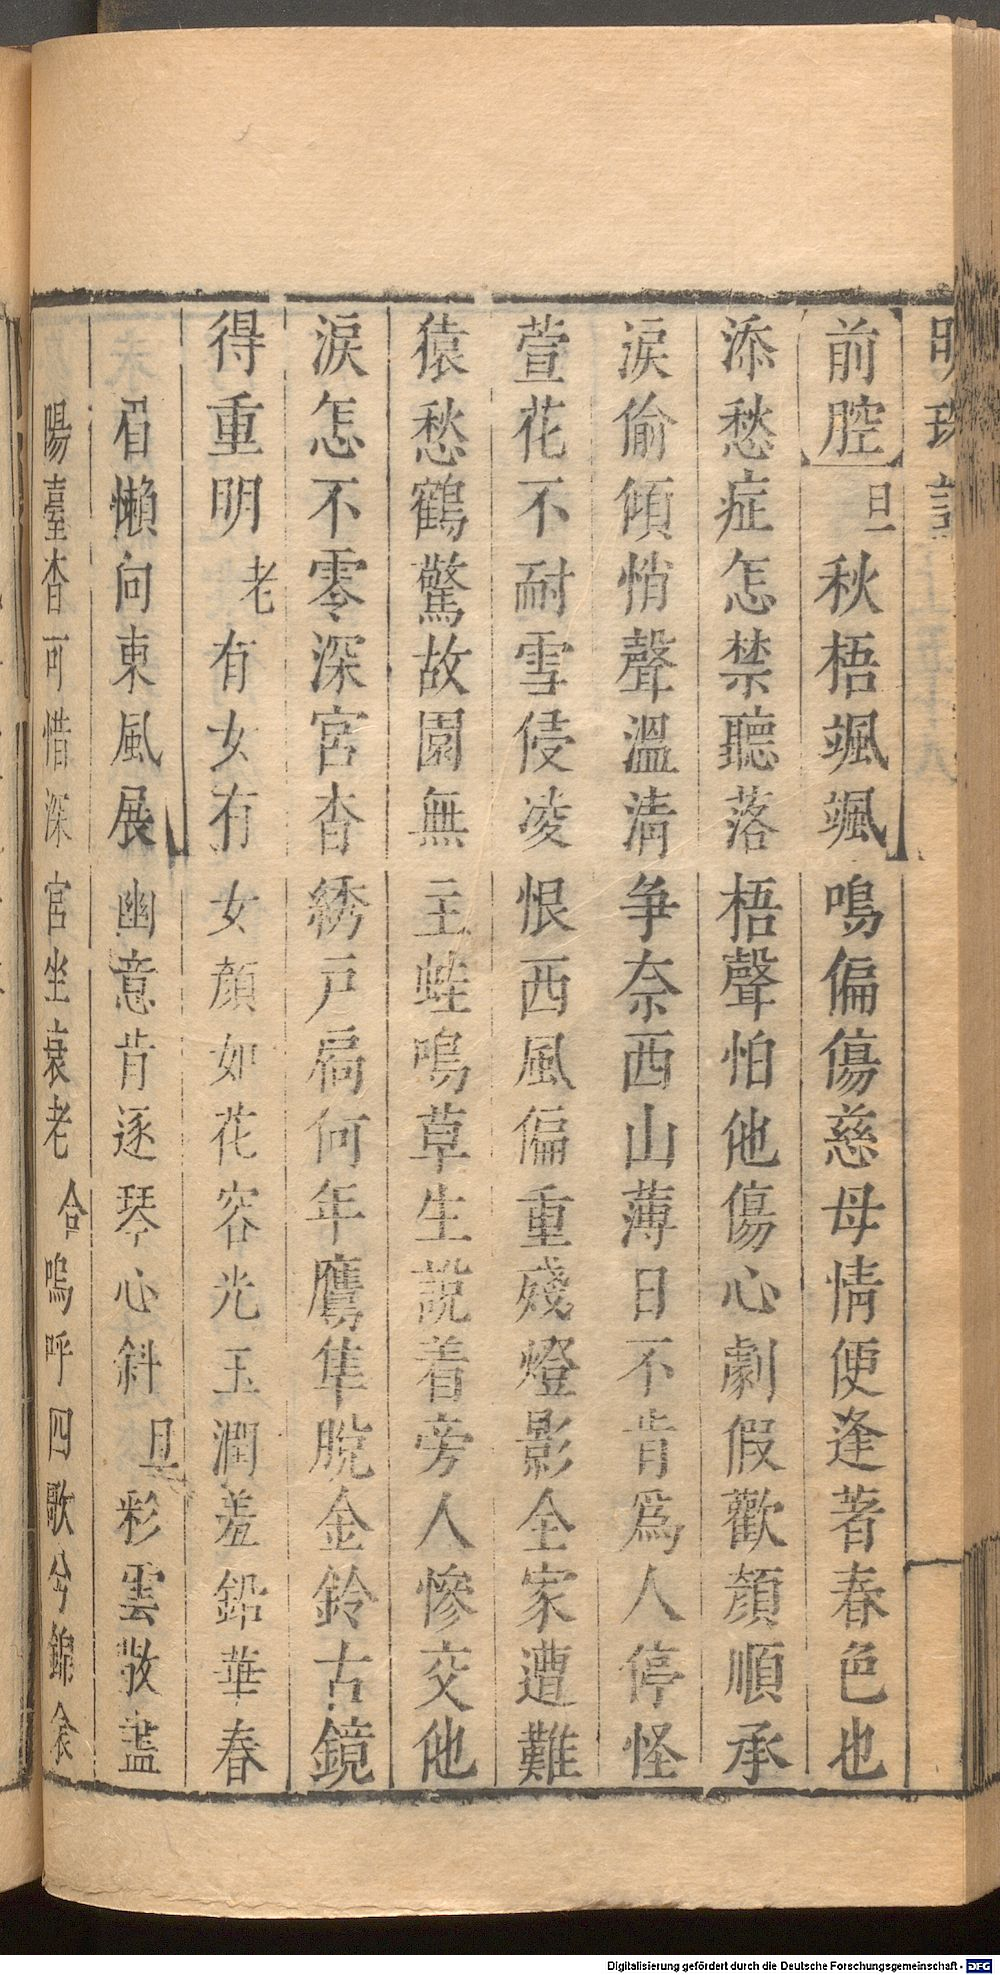 明珠記
前腔旦秋梧颯颯鳴偏傷慈母情便逢著春色也
添愁症怎禁聽落梧聲怕他傷心劇假歡顔順承
淚偷傾悄聲溫清争奈西山薄日不肯爲人停怪
萱花不耐雪侵凌恨西風偏重殘燈影全家遭難
猿愁鶴驚故園無主蛙鳴草生説着旁人慘交他
淚怎不零深宮杳綉戸扄何年鷹隼脫金鈴古鏡
得重明老有女有女顔如花容光玉潤羞鉛華春
眉懶向東風展幽意肯逐琴心斜旦彩雲散盡
陽臺杳可惜深宮坐衰老合嗚呼四歌兮錦衾
Digitalisierung gefördert durch die Deutsche Forschungsgemeinschaft - DFG